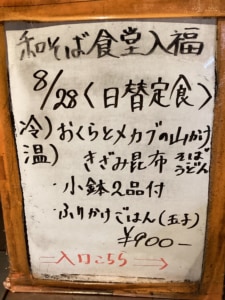 和そば食堂入福
8/28〈日替定食〉
冷)おくらとメカブの山かけ
温)きざみ昆布 そば
うどん
・小鉢2品付
・ふりかけごはん(玉子)
¥900-
→入口こちら→